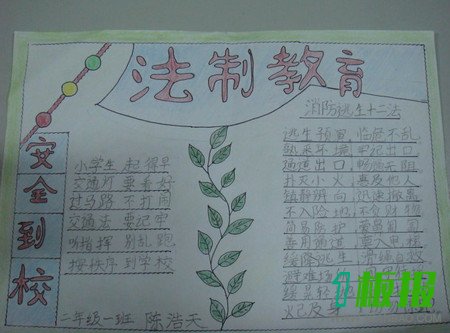 法制教育
安全到校
小学生 起得早
交通灯 要看好
过马路 不打闹
交通法 要记牢
听指挥 别乱跑
按秩序 到学校
二年级一班 陈浩天
消防逃生十二法
逃生预 临危不乱
熟悉环境 牢记出口
通道出口 畅通无阻
扑灭小火 惠及他人
镇静辨向 迅速撤离
不入险地 不贪财物
简易防护
善用通道 莫入电梯
缓降逃生 滑绳自救
避难场
缓晃轻
火已及身
板报